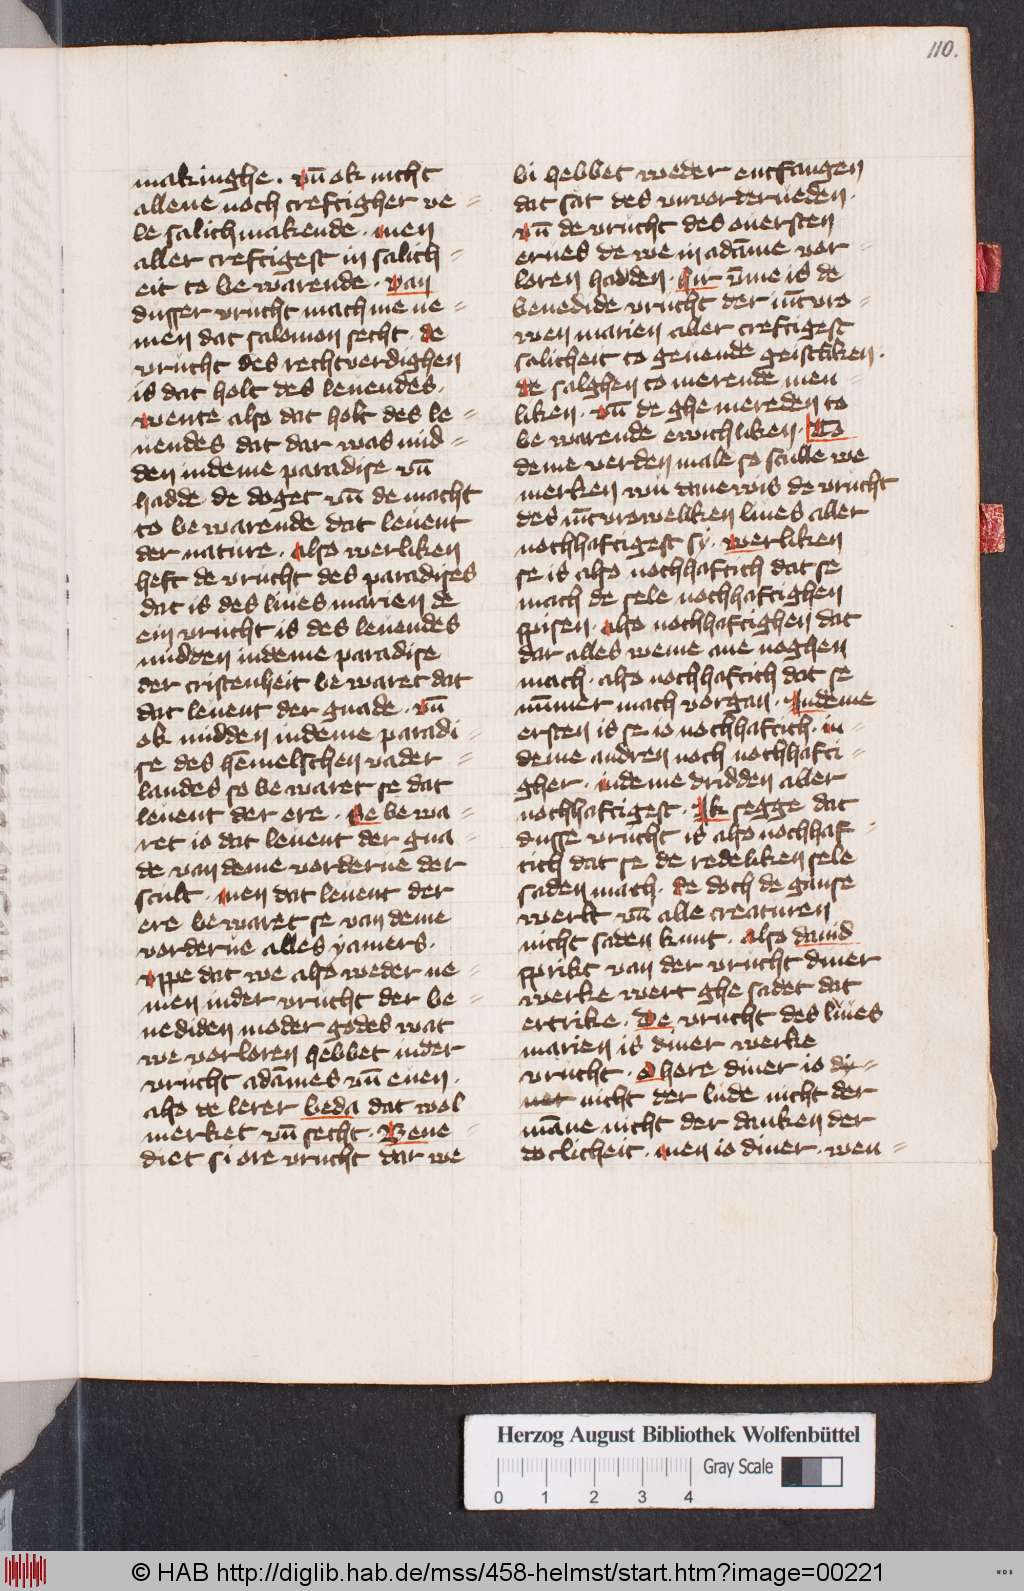 110.
makinghe . vn̄ ok nicht
allene noch creftigher ve =
le salich makende . men
aller creftigest in salich =
eit to be warende . van
dusser vrucht mach me ne =
men dat salomon secht . de
vrucht des rechtverdighen
is dat holt des leuendes .
wente also dat holt des le =
uendes dat dar was mid =
den in deme paradise vn̄
hadde de doget vn̄ de macht
to be warende dat leuent
der nature . also werliken
heft de vrucht des paradises
dat is des liues marien de
ein vrucht is des leuendes
midden in deme paradise
der cristenheit be waret dat
dat leuent der gnade . vn̄
ok midden in deme paradi =
se des hēmelschen vader =
landes so be waret se dat
leuent der ere . Se be wa =
ret io dat leuent der gna =
de van deme vorderue der
scult . men dat leuent der
ere be waret se van deme
vorderue alles yamers .
vppe dat we also weder ne =
men in der vrucht der be =
nediden moder godes wat
we vorloren hebbet in der
vrucht adāmes vn̄ euen .
also de lerer beda dat wol
merket vn̄ secht . Bene =
diet si ore vrucht dar we
bi hebbet weder entfangen
dat sat des vnvorderueden .
vn̄ de vrucht des ouersten
erues de we in adāme vor =
loren hadden . hir v̄me is de
benedide vrucht der iūcvro =
wen marien aller creftigest
salicheit to geuende geistliken .
de salghen to merende men =
liken . vn̄ de ghe mereden to
be warende ewichliken . To
deme verden male so sculle we
merken wu dane wis de vrucht
des iūcvroweliken liues aller
nochhaftigest sy . werliken
se is also nochhaftich dat se
mach de sele nochhaftighen
spisen . also nochhaftighen dat
dar alles weme ane noghen
mach . also nochhaftich dat se
nūmer mach vorgan . In deme
ersten is se io nochhaftich . in =
deme andren noch nochhafti =
gher . in deme dridden aller
nochhaftigest . Ik segge dat
dusse vrucht is also nochhaf =
tich dat se de redeliken sele
saden mach . de doch de ganse
werlt vn̄ alle creaturen
nicht saden kunt . also dauid
sprikt van der vrucht diner
werke wert ghe sadet dat
ertrike . De vrucht des liues
marien is diner werke
vrucht . O here diner io di =
ner nicht der lude nicht der
māne nicht der danken der
doclicheit . men io diner . wen =
Herzog August Bibliothek Wolfenbüttel
Gray Scale
0 1 2 3 4
© HAB http://diglib.hab.de/mss/458-helmst/start.htm?image=00221